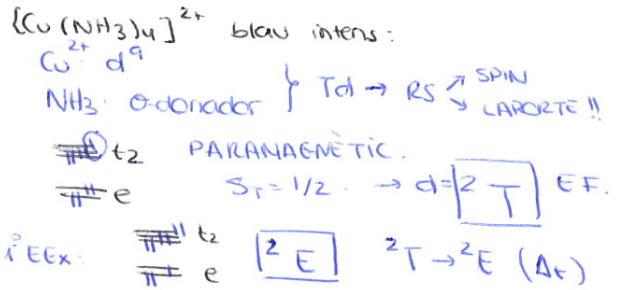 [Cu(NH3)4]²⁺ blau intens:
Cu²⁺: d⁹
NH3: σ-donador } Td → RS ↗ SPIN ↘ LAPORTE!!
t₂ PARAMAGNÈTIC.
e S_T = 1/2. → d = ²T EF.
i EEx: t₂ ²E ²T → ²E (Δt)
e